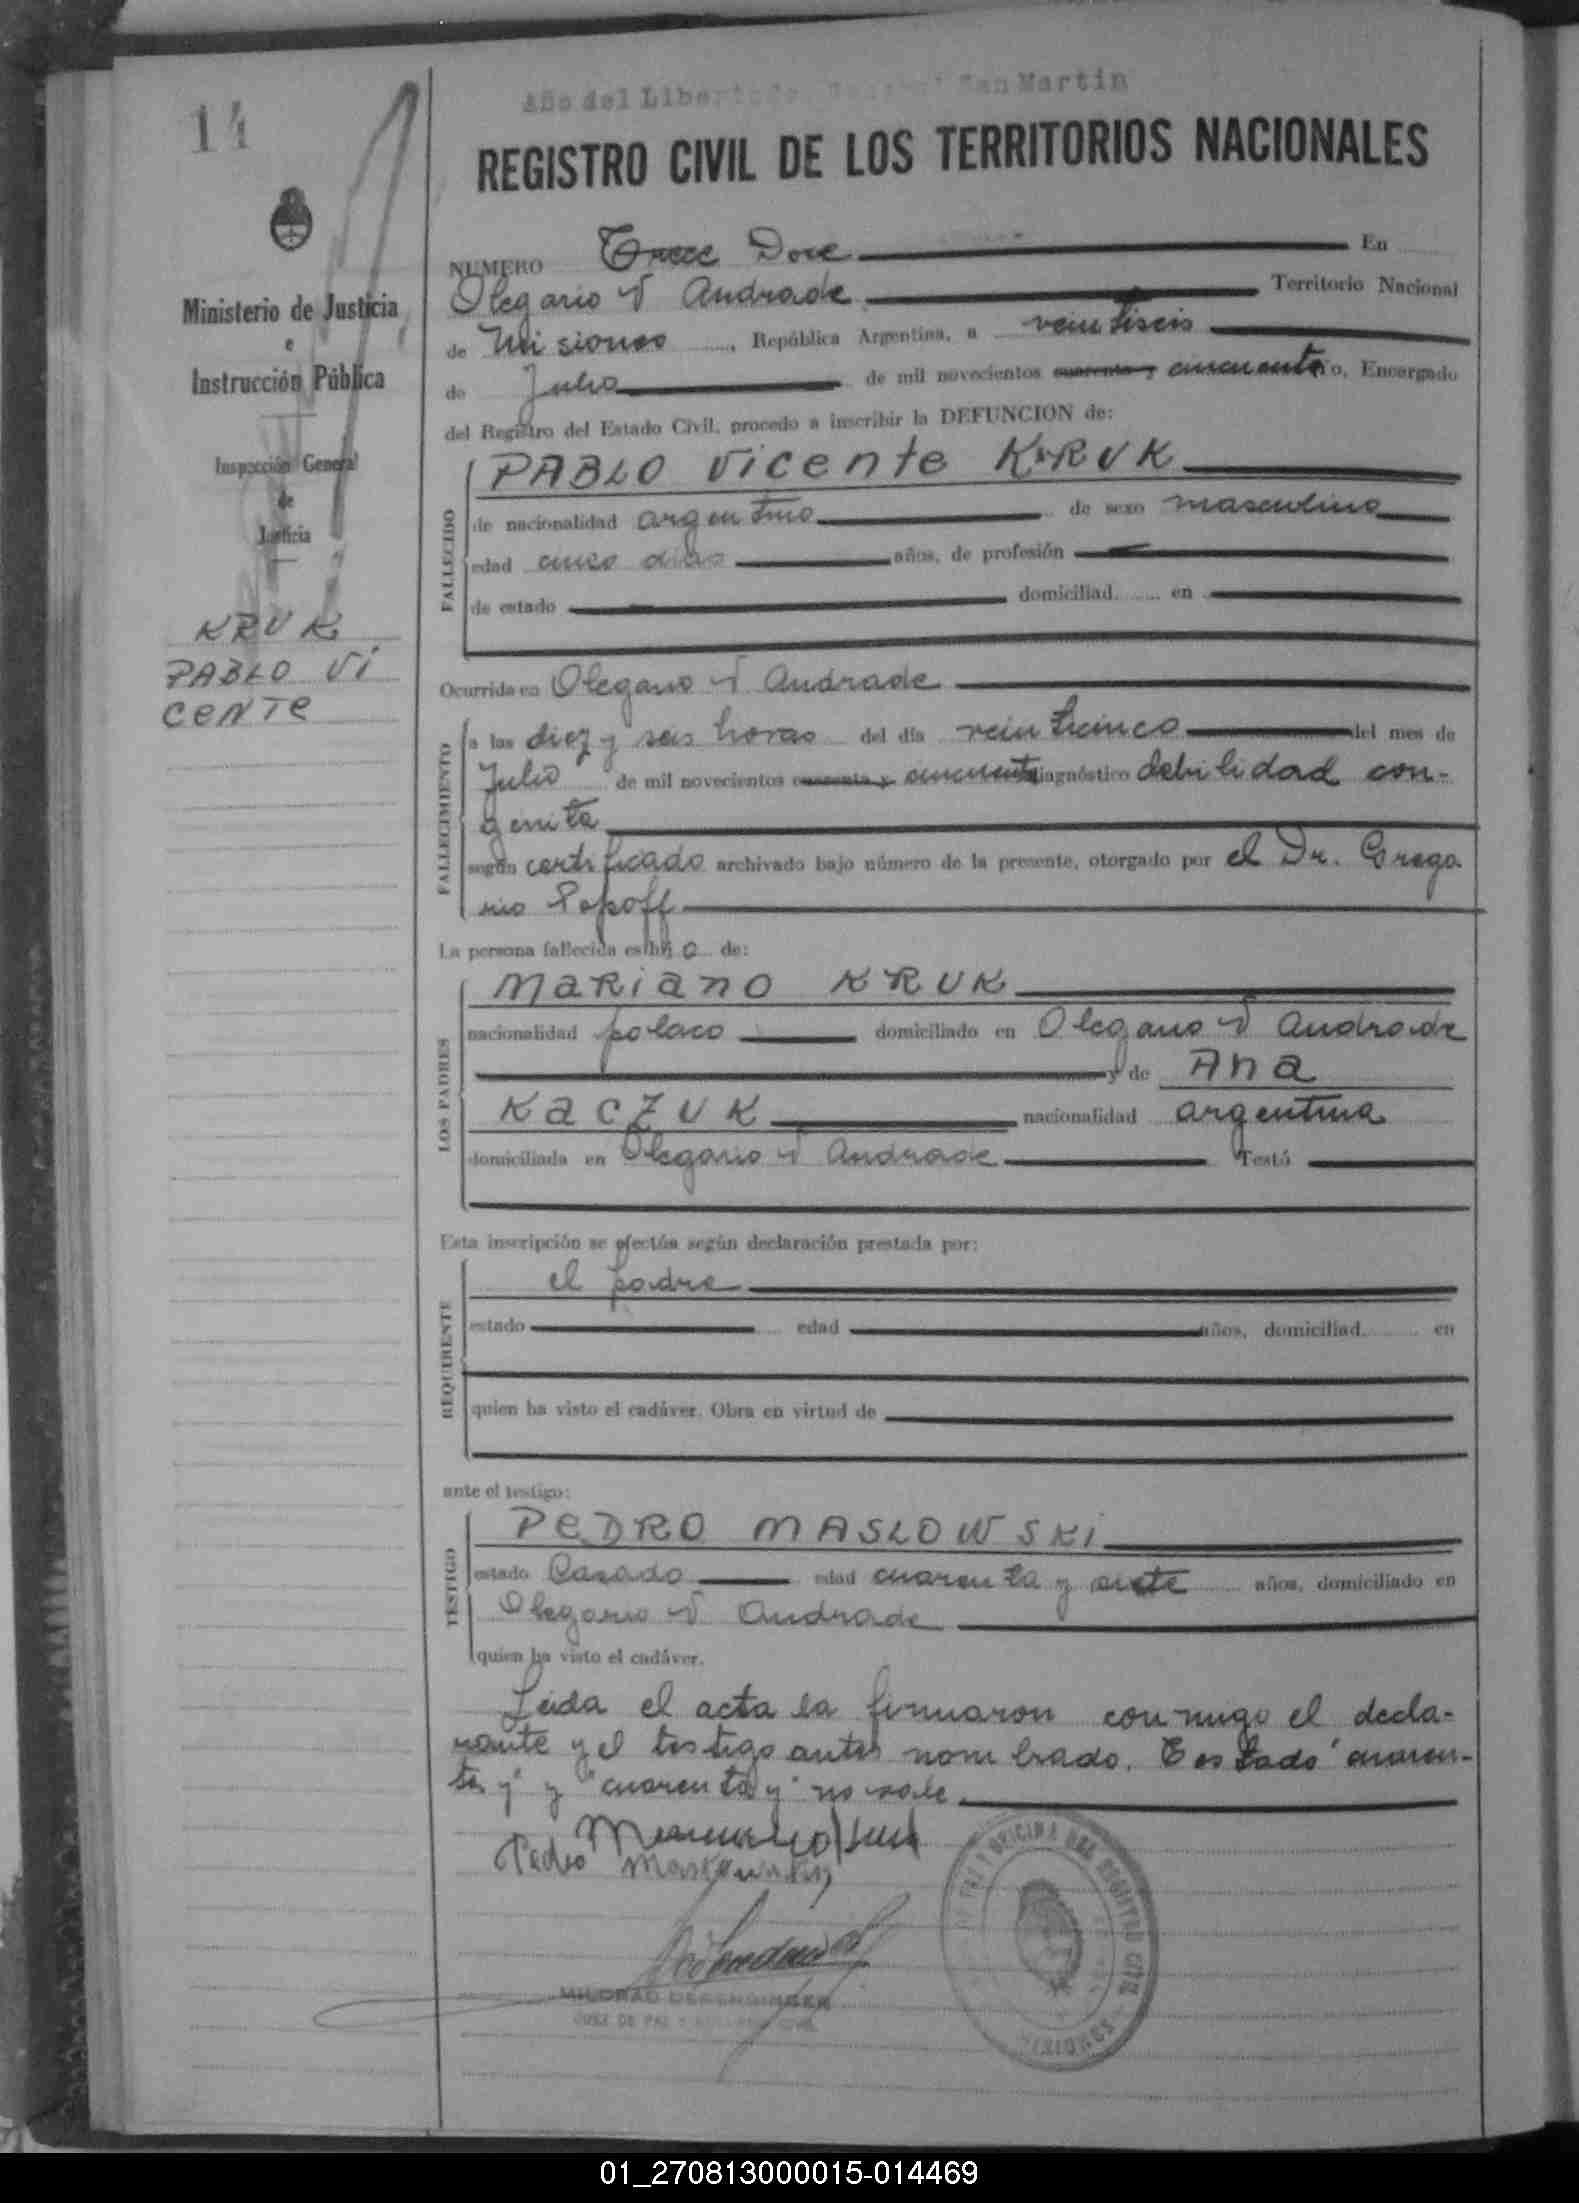 14
Año del Libertador General San Martin
REGISTRO CIVIL DE LOS TERRITORIOS NACIONALES
Ministerio de Justicia
e
Instrucción Pública
Inspección General
de
Justicia
KRUK
PABLO Vi
CENTE
NUMERO Trece Doce En
Olegario V Andrade Territorio Nacional
de Misiones, República Argentina, a veintiseis
de Julio de mil novecientos cuarenta y cincuenta Yo, Encargado
del Registro del Estado Civil, procedo a inscribir la DEFUNCION de:
FALLECIDO
PABLO Vicente KRUK
de nacionalidad argentino de sexo masculino
edad cinco dias años, de profesión
de estado domiciliad........ en
Ocurrida en Olegario V Andrade
FALLECIMIENTO
a las diez y seis horas del día veinticinco del mes de
Julio de mil novecientos cuarenta y cincuenta diagnóstico debilidad con-
genita
según certificado archivado bajo número de la presente, otorgado por el Dr. Grego
rio Popoff
La persona fallecida es hij o de:
LOS PADRES
MARIANO KRUK
nacionalidad polaco domiciliado en Olegario V Andrade
y de Ana
KACZUK nacionalidad argentina
domiciliada en Olegario V Andrade Testó
Esta inscripción se efectúa según declaración prestada por:
REQUIRENTE
el padre
estado edad años, domiciliad........ en
quien ha visto el cadáver. Obra en virtud de
ante el testigo:
TESTIGO
PEDRO MASLOWSKI
estado Casado edad cuarenta y siete años, domiciliado en
Olegario V Andrade
quien ha visto el cadáver.
Leida el acta la firmaron conmigo el decla-
rante y el testigo antes nombrado. Testado "cuaren-
ta y" y "cuarenta y" no vale
Pedro Maslowski
JUEZ DE PAZ
PAZ Y OFICINA DEL REGISTRO CIVIL
MISIONES
01_270813000015-014469